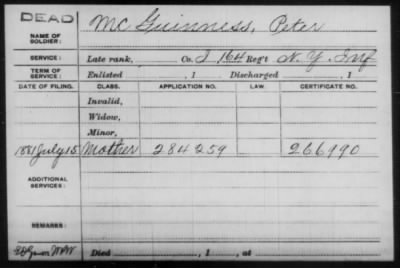 DEAD
NAME OF SOLDIER: McGuinness, Peter
SERVICE: Late rank, Co. I 164 Reg't N. Y. Inf
TERM OF SERVICE: Enlisted , 1 Discharged , 1
DATE OF FILING. CLASS. APPLICATION NO. LAW. CERTIFICATE NO.
Invalid,
Widow,
Minor,
1881 July 15 Mother 284 259 266990
ADDITIONAL SERVICES:
REMARKS:
Died , 1 , at